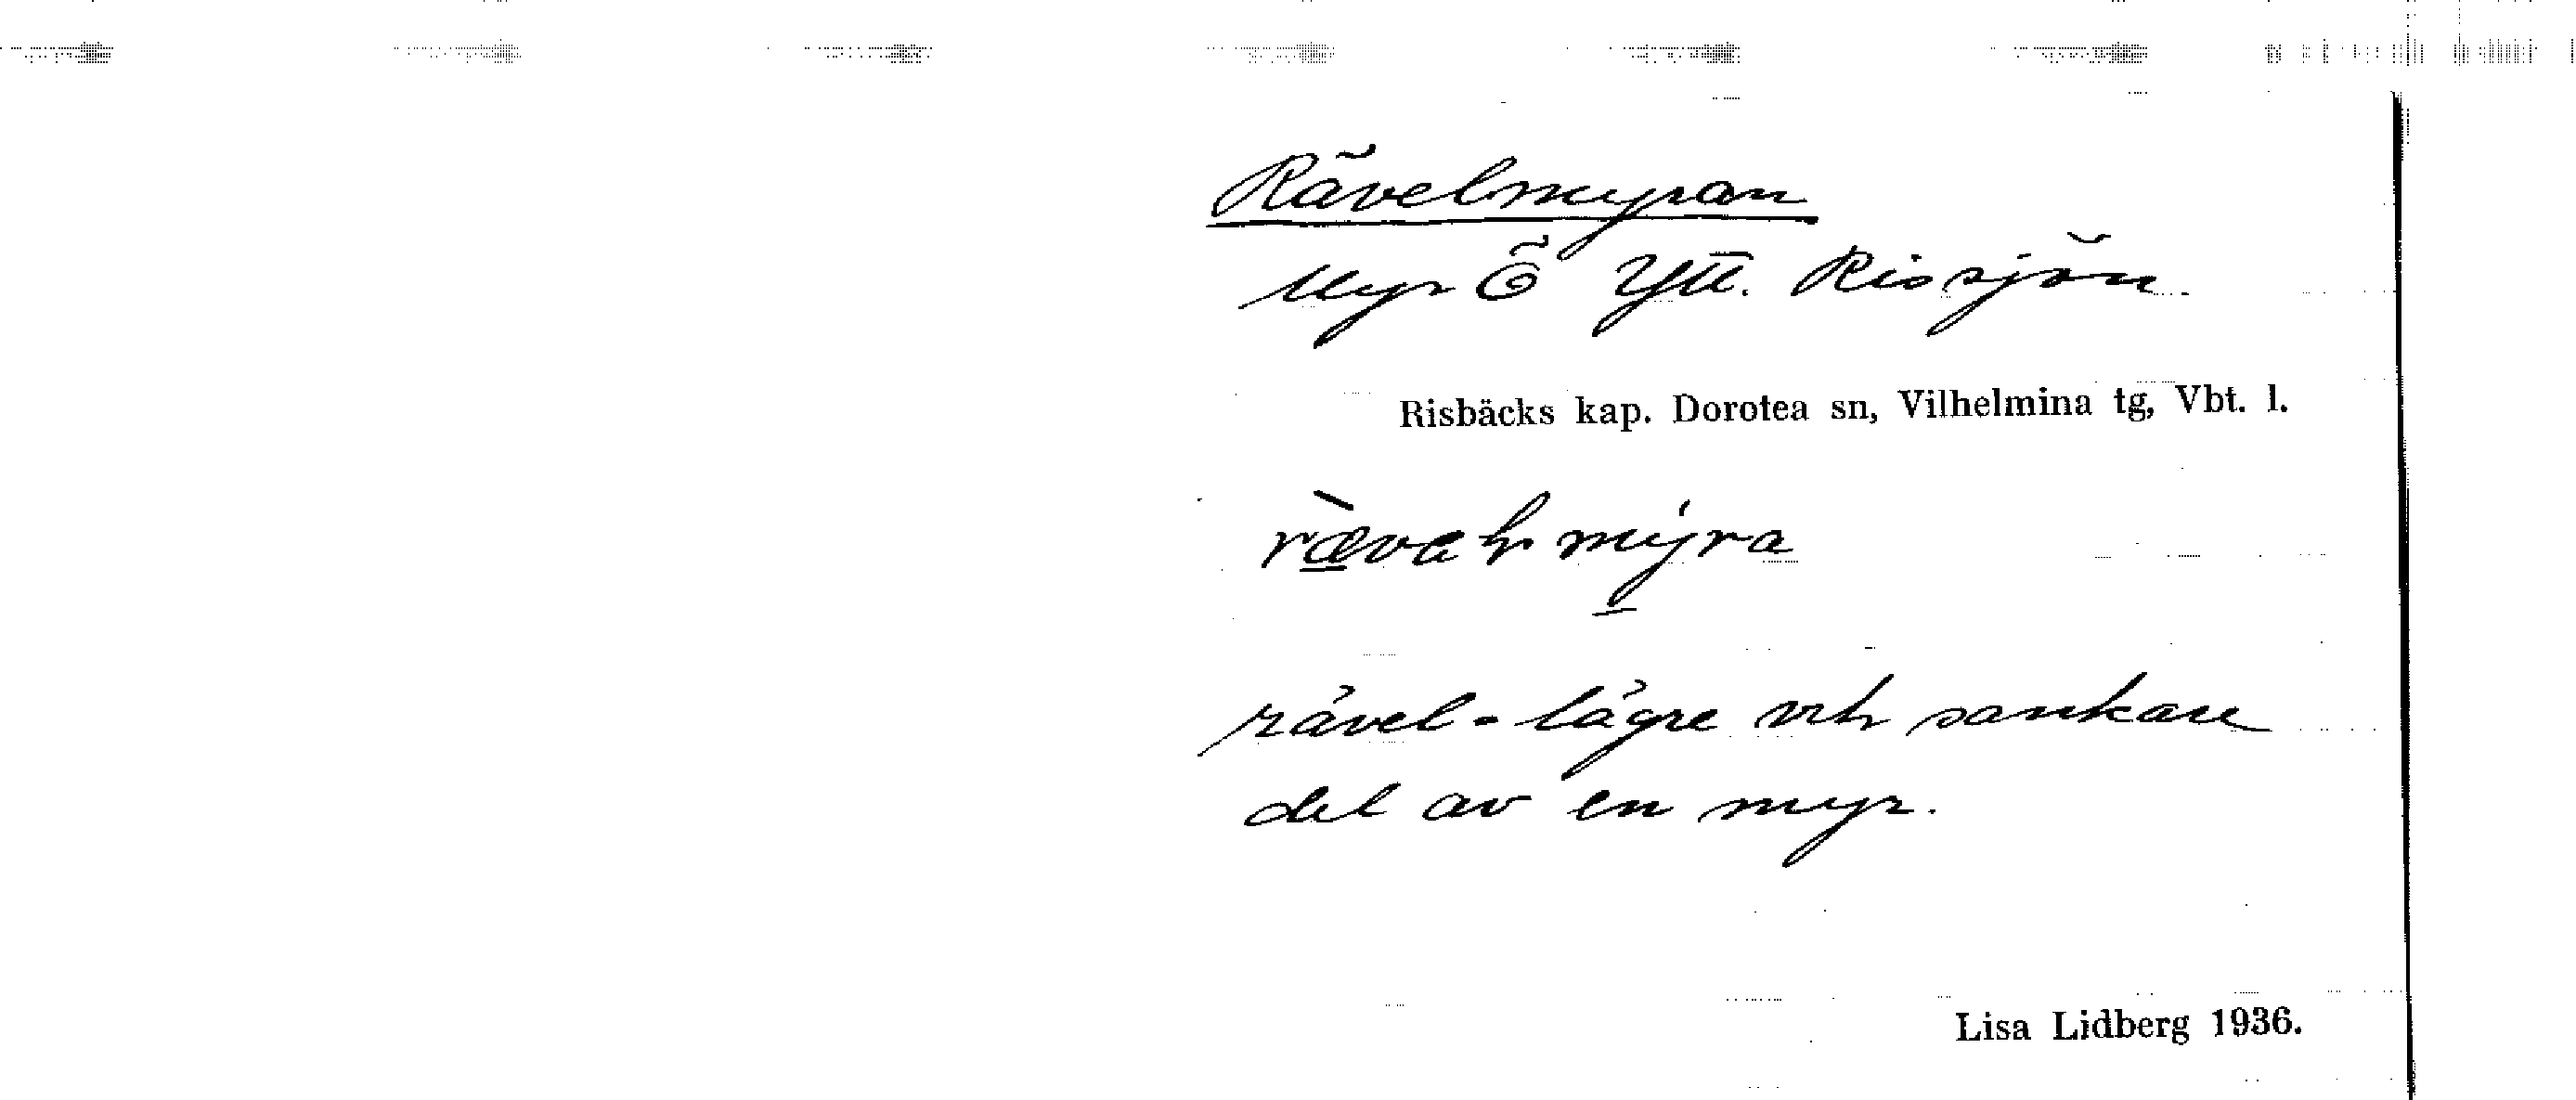 Rävelmyran
Myr Ö Ytt. Rissjön.
Risbäcks kap. Dorotea sn, Vilhelmina tg, Vbt. l.
myra
rävel = lägre och sankare
del av en myr.
Lisa Lidberg 1936.